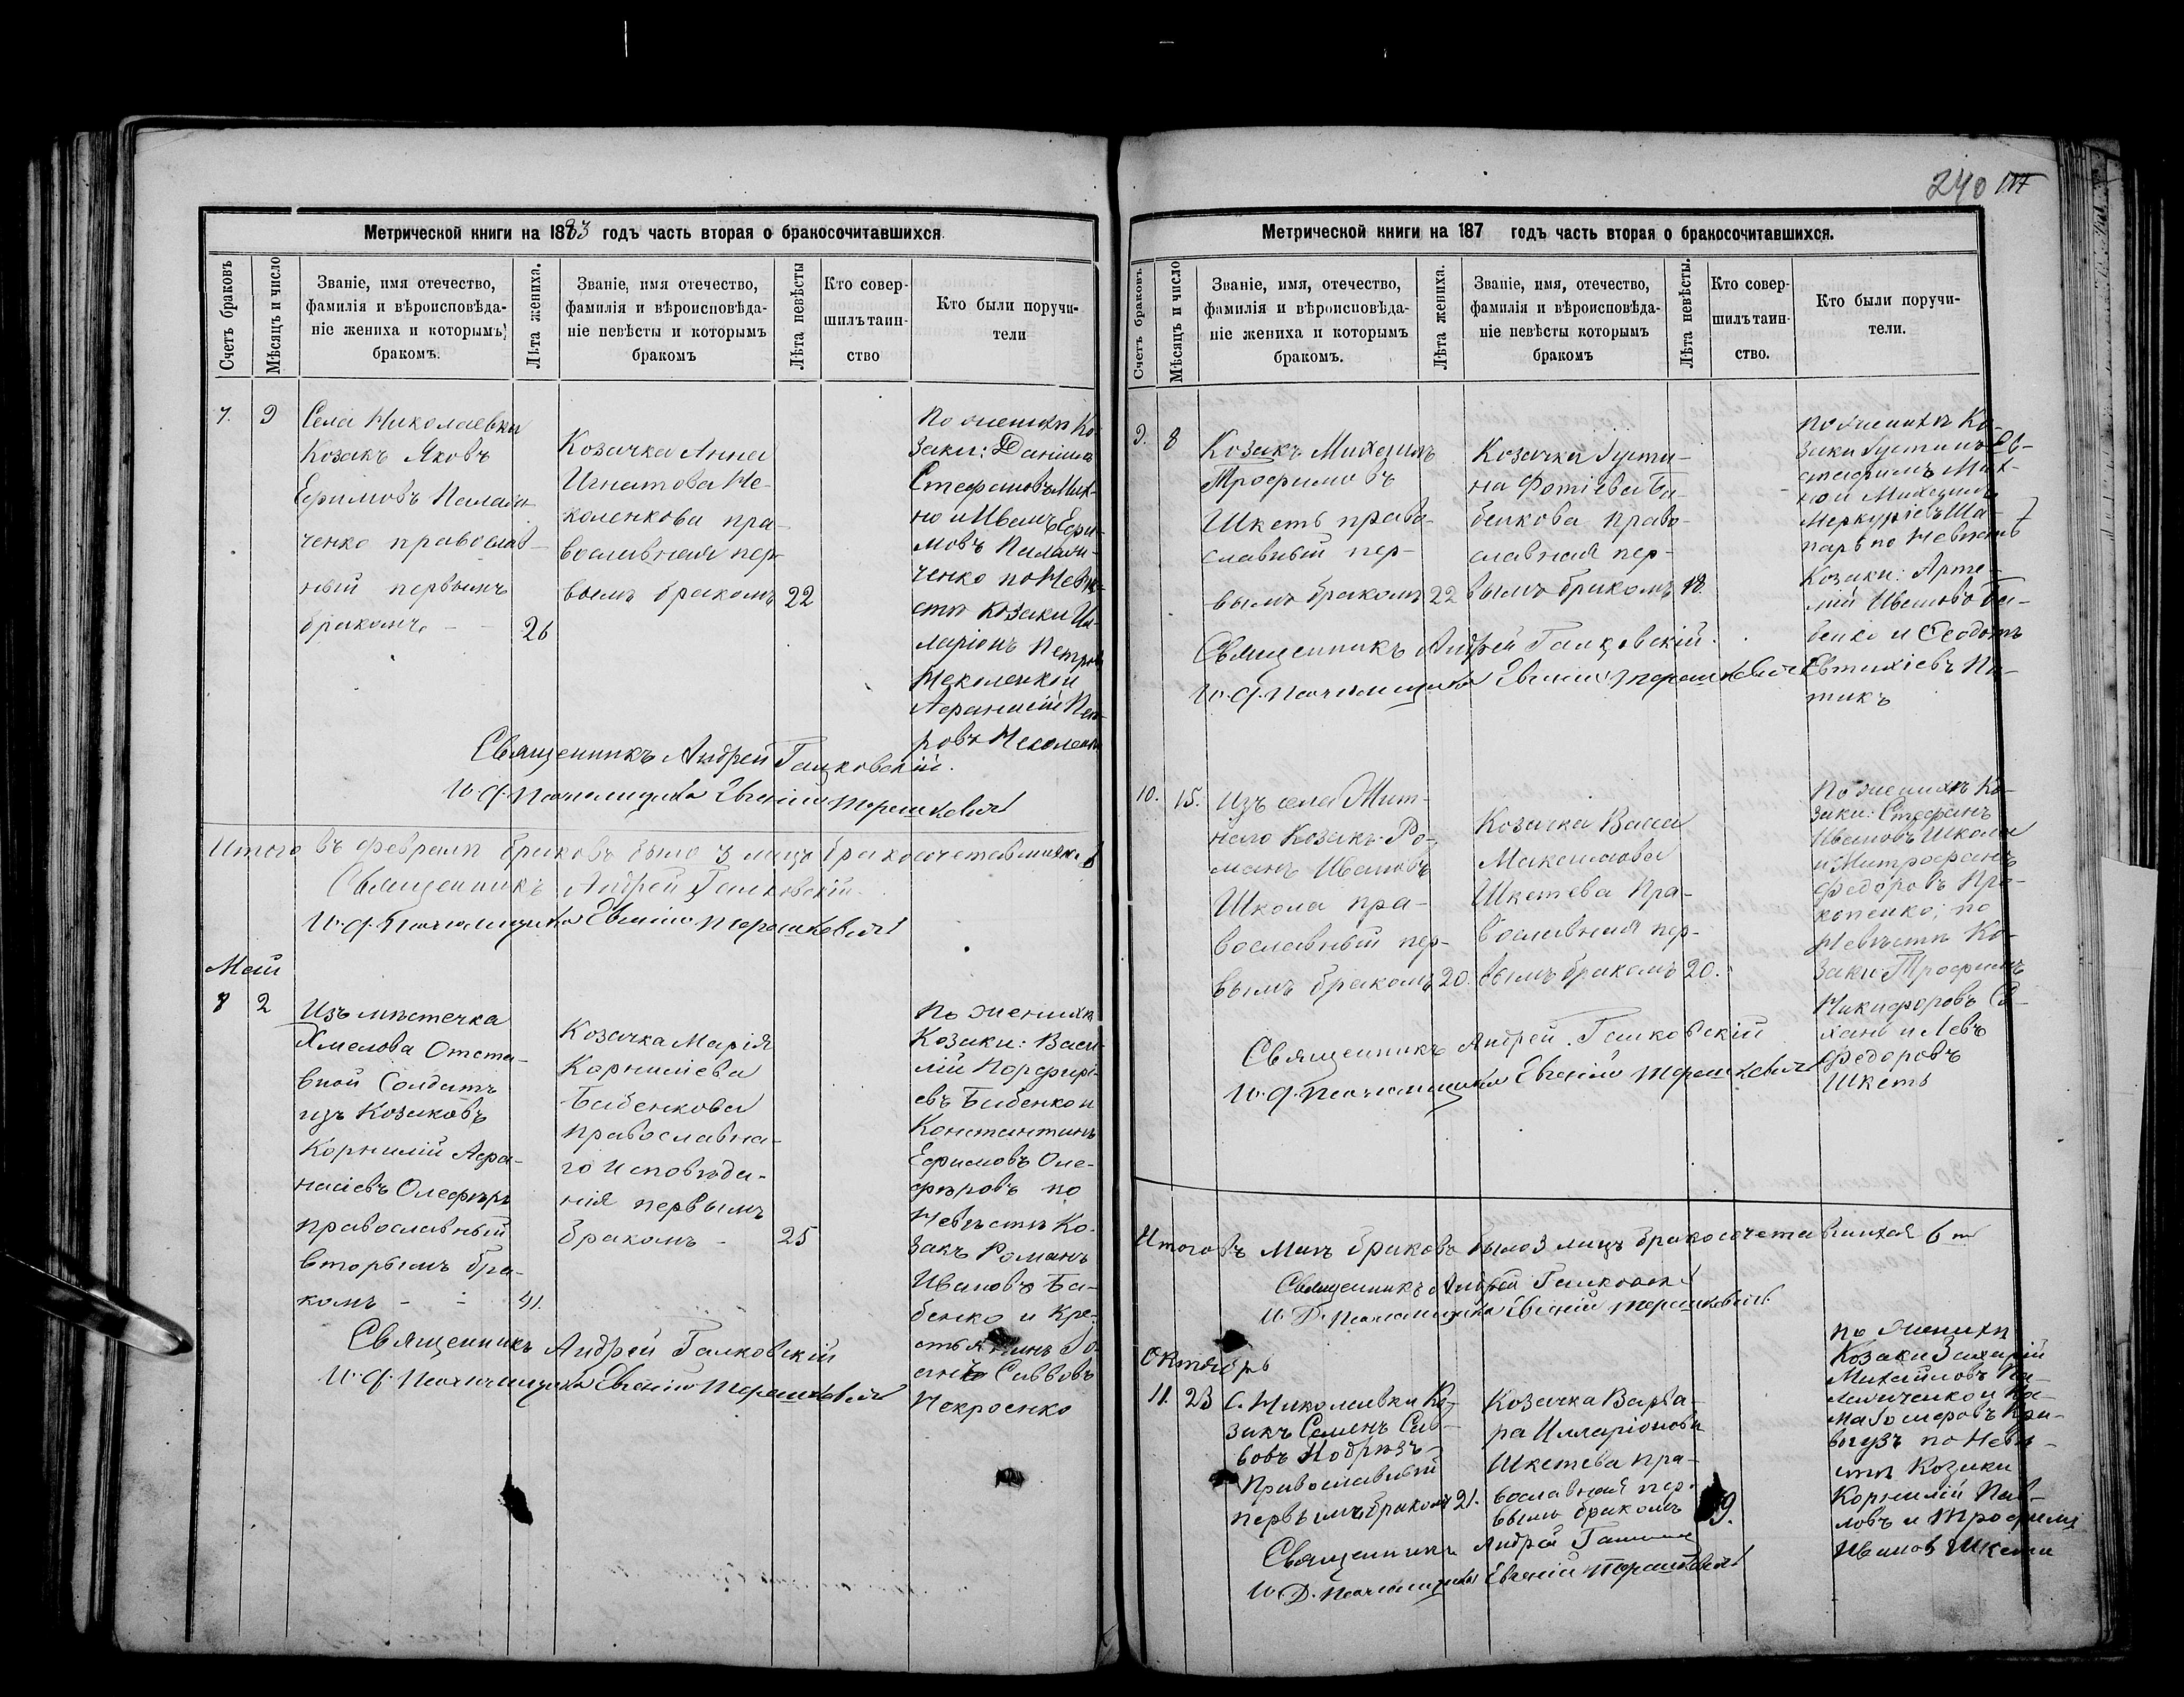 240
Метрической книги на 1883 годъ часть вторая о бракосочитавшихся
Счетъ браковъ
Мѣсяцъ и число
Званіе, имя отечество,
фамилія и вѣроисповѣда-
ніе жениха и которымъ
бракомъ.
Лѣта жениха.
Званіе, имя отечество,
фамилія и вѣроисповѣда-
ніе невѣсты и которымъ
бракомъ
Лѣта невѣсты
Кто совер-
шилъ таин-
ство
Кто были поручи-
тели
7.
9
Села Николаевки
Козакъ Яковъ
Ефимовъ
православ-
ный первымъ
бракомъ
26
Козачка Анна
Игнатова Не-
коленкова пра-
вославная пер-
вымъ бракомъ
22
По женихѣ Ко-
заки: Даніилъ
Стефановъ Мих-
но и Иванъ Ефи-
мовъ
ченко по Невѣ-
стѣ Козаки Ил-
ларіонъ Петров
Афанасій Пет-
ровъ
Священникъ Андрей Галковскій.
И. д. Псаломщика Евгеній Терешкевичъ
Итого въ Февралѣ браковъ было 3 лицъ бракосочетавшихся 6
Священникъ Андрей Галковскій.
И. д. Псаломщика Евгеній Терешкевичъ
Май
8
2
Изъ мѣстечка
Хмелова Отста-
вной Солдатъ
изъ Козаковъ
Корнилій Афа-
насіевъ Олефиръ
православный
вторымъ бра-
комъ
41.
Козачка Марія
Корниліева
Бабенкова
православна-
го исповѣда-
нія первымъ
бракомъ
25
По женихѣ
Козаки: Васи-
лій Порфирі-
евъ Бабенко и
Константинъ
Ефимовъ Оле-
фировъ по
Невѣстѣ Ко-
закъ Романъ
Ивановъ Ба-
бенко и Кре-
стьянинъ
Савовъ
Некросенко
Священникъ Андрей Галковскій
И. д. Псаломщика Евгеній Терешкевичъ
Метрической книги на 187 годъ часть вторая о бракосочитавшихся.
Счетъ браковъ.
Мѣсяцъ и число
Званіе, имя, отечество,
фамилія и вѣроисповѣда-
ніе жениха и которымъ
бракомъ.
Лѣта жениха.
Званіе, имя, отечество,
фамилія и вѣроисповѣда-
ніе невѣсты которымъ
бракомъ
Лѣта невѣсты.
Кто совер-
шилъ таин-
ство.
Кто были поручи-
тели.
9.
8
Козакъ Михаилъ
Трофимовъ
Шкеть право-
славный пер-
вымъ бракомъ
22
Козачка Іусти-
на Фотіева Ба-
бенкова право-
славная пер-
вымъ бракомъ
18.
По женихѣ Ко-
заки Іустинъ Ев-
стафіевъ Мих-
но и Михаилъ
Меркуріевъ Ша-
по Невѣстѣ
Козаки: Арте-
мій Ивановъ Ба-
бенко и Феодотъ
Евтихіевъ Пя-
тикъ
Священникъ Андрей Галковскій.
И. д. Псаломщика Евгеній Терешкевичъ
10.
15.
Изъ села
Козакъ Ро-
манъ Ивановъ
Школа пра-
вославный пер-
вымъ бракомъ
20.
Козачка Васса
Максимова
Шкетева пра-
вославная пер-
вымъ бракомъ
20.
По женихѣ Ко-
заки: Стефанъ
Ивановъ Школа
и Митрофанъ
Федоровъ Про-
копенко; по
Невѣстѣ Ко-
заки Трофимъ
Никифоровъ
и Левъ
Федоровъ
Шкеть
Священникъ Андрей Галковскій
И. д. Псаломщика Евгеній Терешкевичъ
Итого въ Маѣ браковъ было 3 лицъ бракосочетавшихся 6
Священникъ Андрей Галковскій
И. Д. Псаломщика Евгеній Терешкевичъ
Октябрь
11.
23
С. Николаевки Ко-
закъ Семенъ Сав-
вовъ
Православный
первымъ бракомъ
21.
Козачка Варва-
ра Илларіонова
Шкетева пра-
вославная пер-
вымъ бракомъ
19.
По женихѣ
Козаки Захарій
Михайловъ
по Невѣ-
стѣ Козаки
Корнилій Пав-
ловъ и Трофимъ
Ивановъ Шкети
Священникъ Андрей
И. Д. Псаломщика Евгеній Терешкевичъ